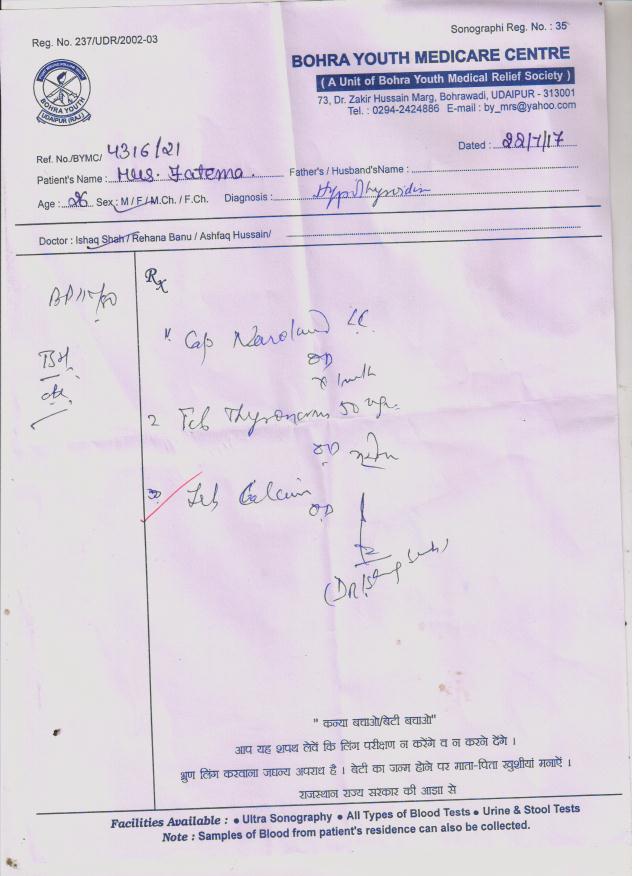 Reg. No. 237/UDR/2002-03
Sonographi Reg. No. : 35
BOHRA YOUTH MEDICARE CENTRE
( A Unit of Bohra Youth Medical Relief Society )
73, Dr. Zakir Hussain Marg, Bohrawadi, UDAIPUR - 313001
Tel. : 0294-2424886 E-mail : by_mrs@yahoo.com
BOHRA YOUTH
UDAIPUR (RAJ.)
Ref. No./BYMC/ 4316/21
Dated : 22/7/17
Patient's Name : Mrs. Fatema. Father's / Husband'sName :
Age : 26 Sex : M / F / M.Ch. / F.Ch. Diagnosis :
Doctor : Ishaq Shah / Rehana Banu / Ashfaq Hussain/
Rx
Cap
OD
2 Tab 50
OD
Tab Calcium
OD
" कन्या बचाओ/बेटी बचाओ"
आप यह शपथ लेवें कि लिंग परीक्षण न करेंगे व न करने देंगे ।
भ्रुण लिंग करवाना जघन्य अपराध है । बेटी का जन्म होने पर माता-पिता खुशीयां मनाऐं ।
राजस्थान राज्य सरकार की आज्ञा से
Facilities Available : • Ultra Sonography • All Types of Blood Tests • Urine & Stool Tests
Note : Samples of Blood from patient's residence can also be collected.